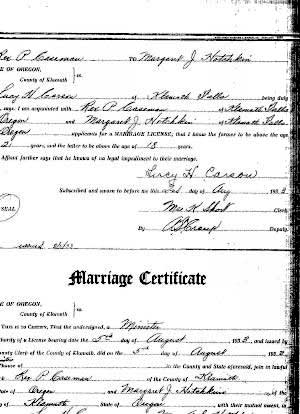 Rex P. Caseman TO Margaret J. Hotchkin
E OF OREGON,
County of Klamath
Lucy H. Carson of Klamath Falls being duly
, says: I am acquainted with Rex P. Caseman of Klamath Falls
Oregon and Margaret J. Hotchkin of Klamath Falls
Oregon applicants for a MARRIAGE LICENSE, that I know the former to be above the age
21 years, and the latter to be above the age of 18 years.
Affiant further says that he knows of no legal impediment to their marriage.
Lucy H Carson
Subscribed and sworn to before me this day of Aug 1933
Mae K. Short Clerk
SEAL
By Deputy.
Marriage Certificate
E OF OREGON,
County of Klamath
THIS IS TO CERTIFY, That the undersigned, a Minister
thority of a License bearing date the 5th day of August 1933, and issued by
unty Clerk of the County of Klamath, did on the 5th day of August 1933
house of in the County and State aforesaid, join in lawful
Rex P. Caseman of the County of Klamath
of Oregon and Margaret J. Hotchkin
of Klamath State of Oregon with their mutual assent, in